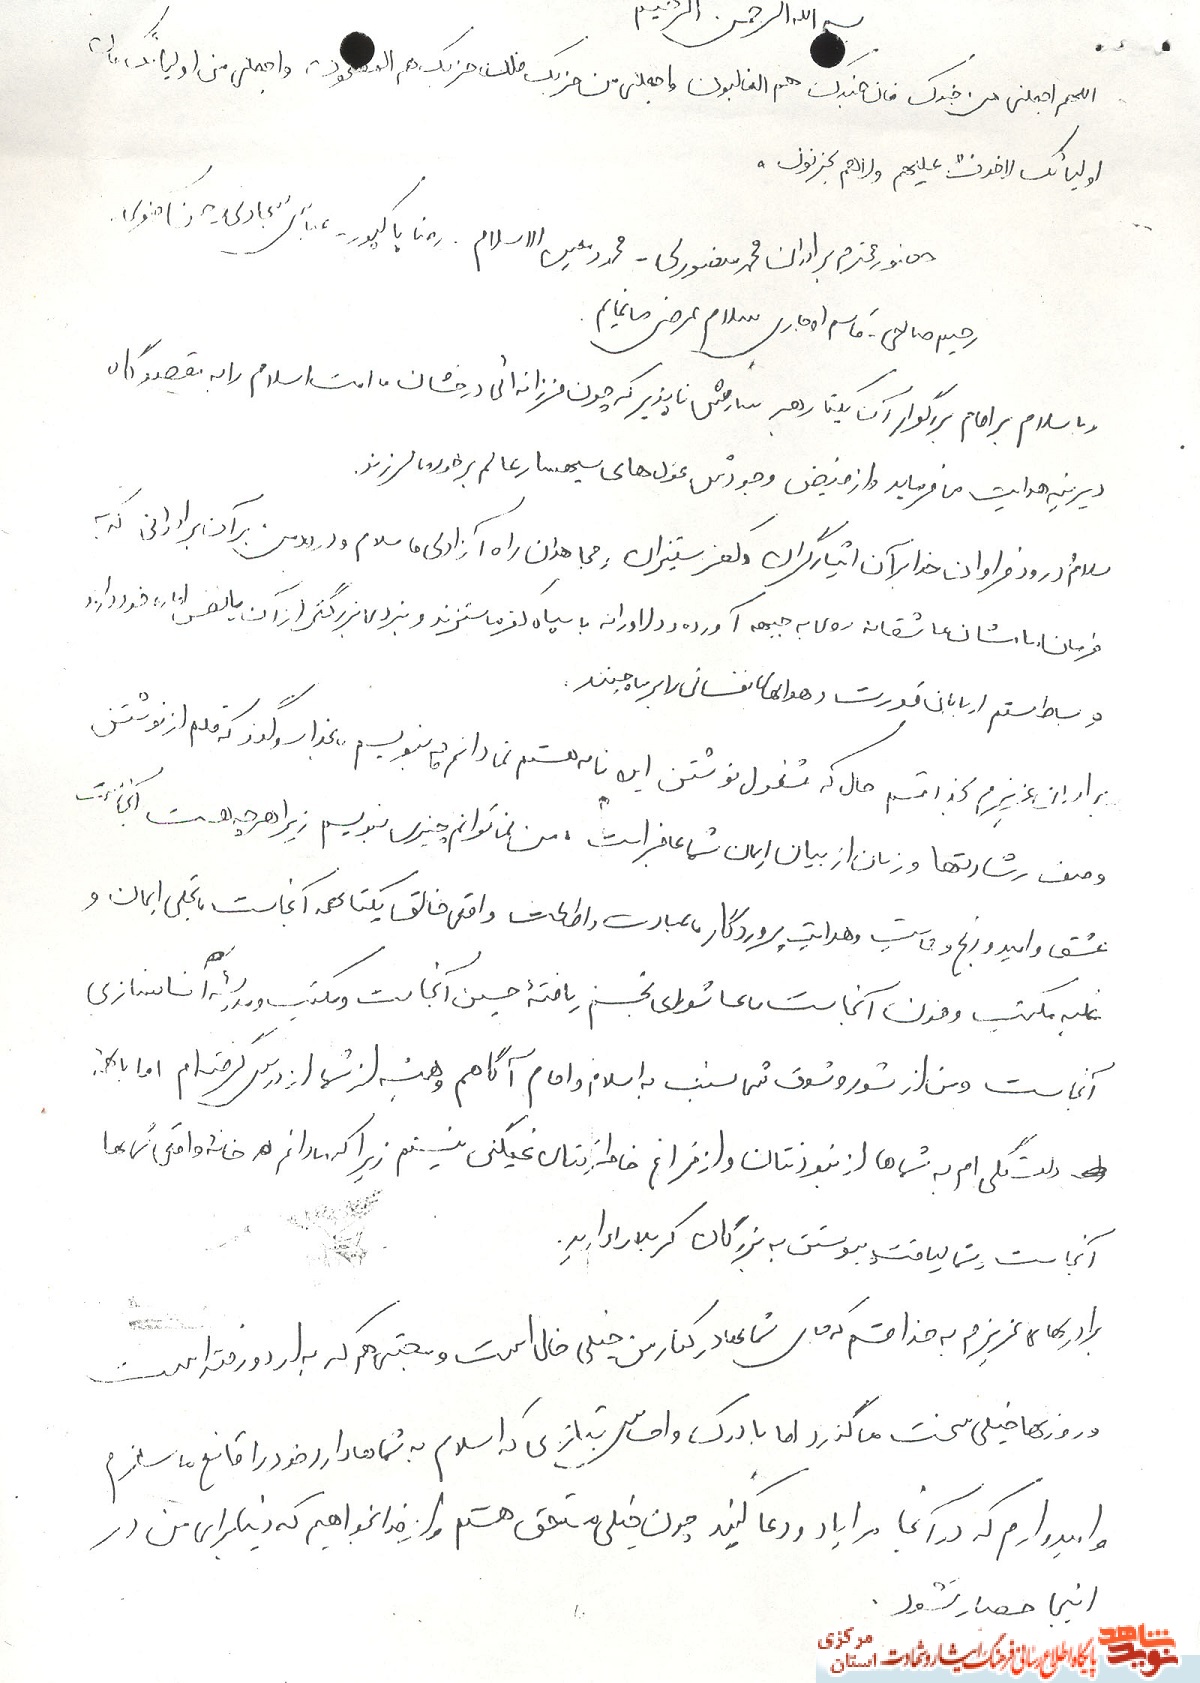 بسم الله الرحمن الرحیم
اللهم اجعلنی من جندک فان جندک هم الغالبون واجعلنی من حزبک فان حزبک هم المفلحون واجعلنی من اولیائک فان
اولیائک لاخوف علیهم ولاهم یحزنون
حضور محترم برادران محمد منصوری - محمود معین الاسلام - رضا پاکپور - عباس
رحیم صالحی - قاسم سلام عرض مینمایم.
با سلام بر امام بزرگوار آن یکتا رهبر سازش ناپذیر که چون فرزانه ائی درخشان امت اسلام را به
دیرینه هدایت میفرماید و از فیض وجودش غولهای عالم برخود میلرزند.
سلام و درود فراوان خدا بر آن ایثارگران و کفر ستیزان و مجاهدان راه آزادی سلام و درود من بر آن برادرانی که به
فرمان امامشان عاشقانه روی به جبهه آورده و دلاورانه با سپاه کفر می ستیزند و نبردی بزرگتر از آن با نفس اماره خود دارند
و بساط ستم اربابان قدرت و هواهای نفسانی را بر میچینند.
برادران عزیزم بخدا قسم حال که مشغول نوشتن این نامه هستم نمیدانم چه بنویسم قلم از نوشتن
وصف رشادتها و زبان از بیان ایمان شما عاجز است، من نمیتوانم چیزی بنویسم زیرا هر چه هست آنجاست
عشق و امید و رنج و هدایت پروردگار عبادت و اطاعت واقعی خالق یکتا همه آنجاست تجلی ایمان و
غلبه مکتب و خون آنجاست عاشورای تجسم یافتهٔ حسین آنجاست و مکتب و مدرسه انسانسازی
آنجاست و من از شور و شوق شما نسبت به اسلام و امام آگاهم و همیشه از شما درس گرفته ام اما با همهٔ
دلتنگی ام به شماها از نبودنتان و از فراغ خاطراتتان غمگین نیستم زیرا که میدانم خانهٔ واقعی شماها
آنجاست و شما لیاقت پیوستن به بزرگان کربلا را دارید.
برادرهای عزیزم به خدا قسم که جای شماها در کنار من خیلی خالی است و مجتبی هم که به اردو رفته است
و روزها خیلی سخت میگذرد اما با درک و احساس نیازی که اسلام به شماها دارد خود را قانع میسازم
و امیدوارم که در آنجا مرا یاد و دعا کنید چون خیلی مستحق هستم و از خدا بخواهیم که دنیا برای من در
اینجا حصار نشود.
نوید شاهد
پایگاه اطلاع رسانی فرهنگ ایثار و شهادت استان مرکزی